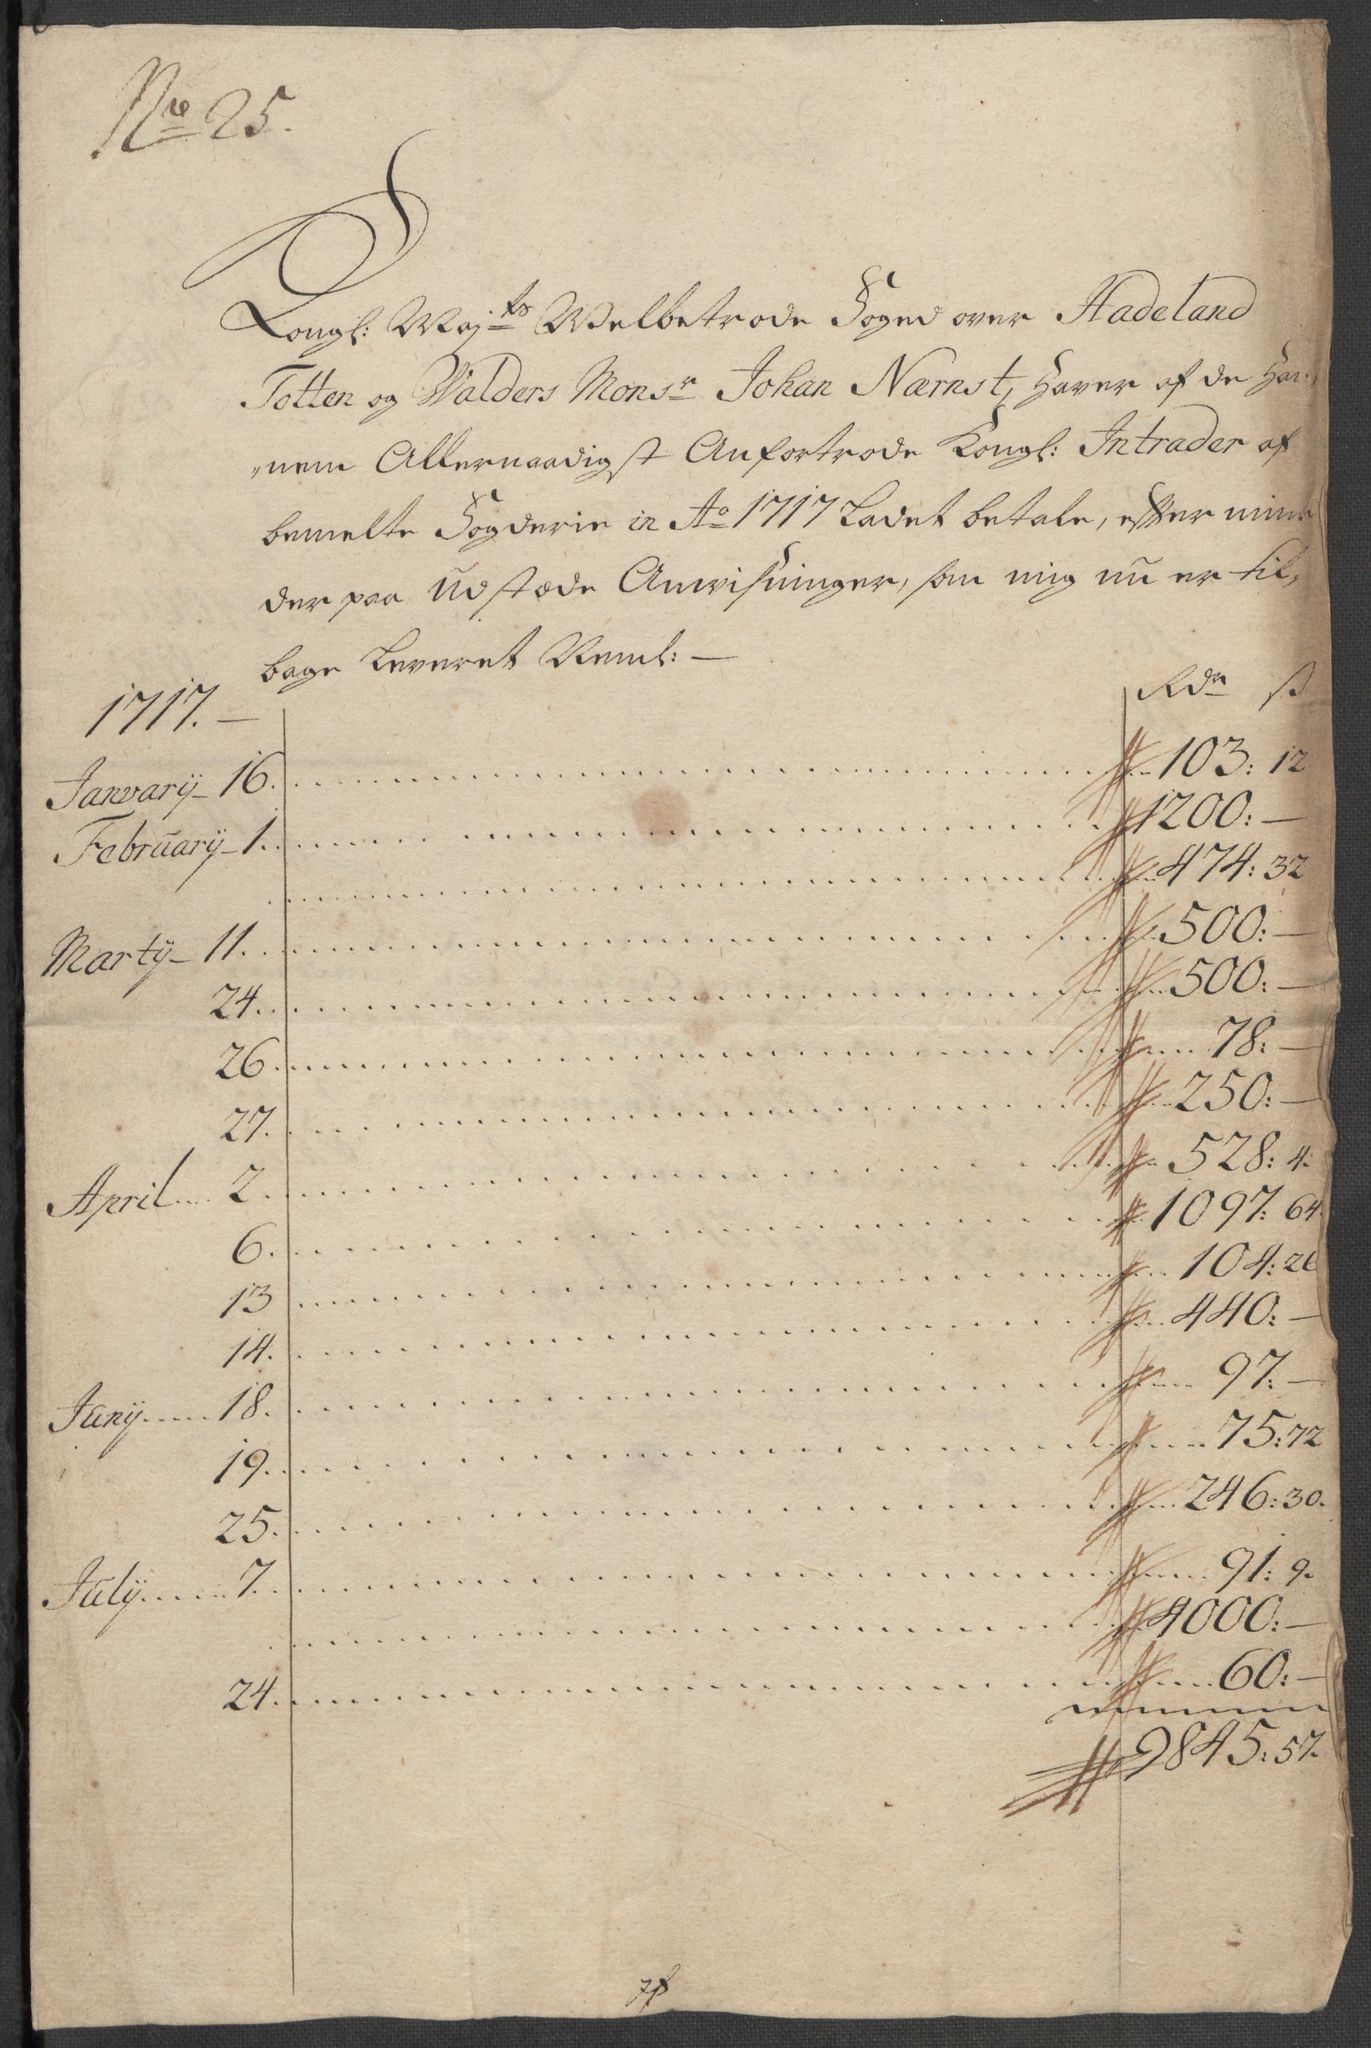 No 25.
Kongl: Majts Welbetrode Foged over Hadeland
Totten og Walders Monsr Johan Nærnst, haver af de Han,
„nem Allernaadigst Anfortrode Kongl: Intrader af
bemelte Fogderie in Ao 1717 Ladet betale, efter mine
der paa udstæde Anvisninger, som mig nu er til,
bage Leveret Neml: —
Rdr ß
1717. —
January 16. 103: 12
February 1. 1200: —
474: 32
Martij 11. 500: —
24. 500: —
26. 78: —
27. 250: —
April 2. 528: 4.
6. 1097: 64.
13 104: 26
14. 440: —
Junij 18. 97: —
19. 75: 72
25. 246: 30.
Julij 7. 91: 9.
4000: —
24. 60: —
9845: 57.